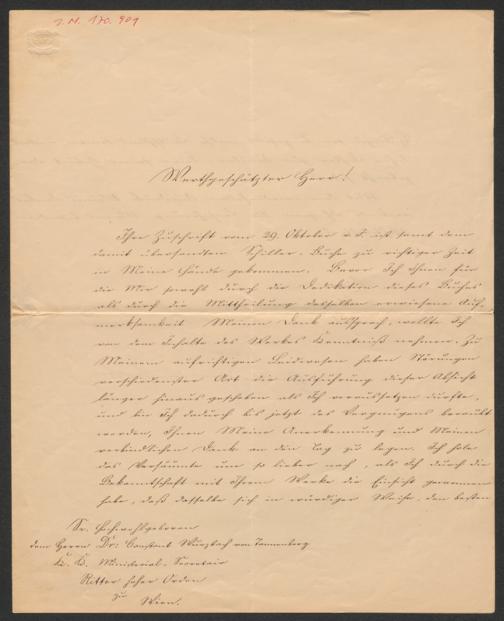 I.N. 170.901
Werthgeschätzter Herr!
Ihre Zuschrift vom 29. Oktober v. J. ist samt dem
damit übersandten Schiller-Buche zu richtiger Zeit
in Meine Hände gekommen. Bevor Ich Ihnen für
die Mir sowohl durch die Dedikation dieses Buches
als durch die Mittheilung desselben erwiesene Auf-
merksamkeit Meinen Dank aussprach, wollte Ich
von dem Inhalte des Werkes Kenntniß nehmen. Zu
Meinem aufrichtigen Leidwesen haben Störungen
verschiedenster Art die Ausführung dieser Absicht
länger hinaus geschoben als Ich voraussetzen durfte,
und bin Ich dadurch bis jetzt des Vergnügens beraubt
worden, Ihnen Meine Anerkennung und Meinen
verbindlichen Dank an den Tag zu legen. Ich hole
das Versäumte um so lieber nach, als Ich durch die
Bekanntschaft mit Ihrem Werke die Einsicht gewonnen
habe, daß dasselbe sich in würdiger Weise, den besten
Sr. Hochwohlgeboren
dem Herrn Dr: Constant Wurzbach von Tannenberg
K. K. Ministerial-Secretair
Ritter hoher Orden
zu
Wien.